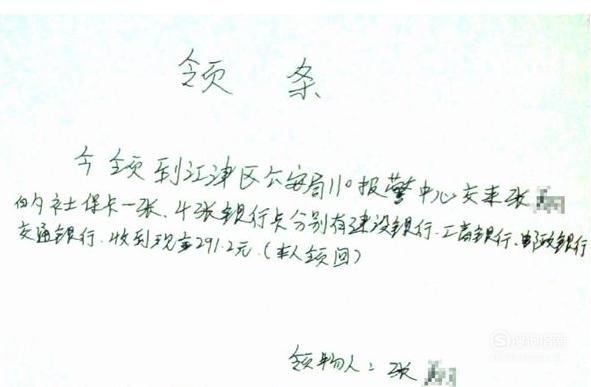 领 条
今领到江津区公安局110报警中心交来张
的社保卡一张、4张银行卡分别有建设银行、工商银行、邮政银行
交通银行、收到现金291.2元.(本人领回)
领物人:张